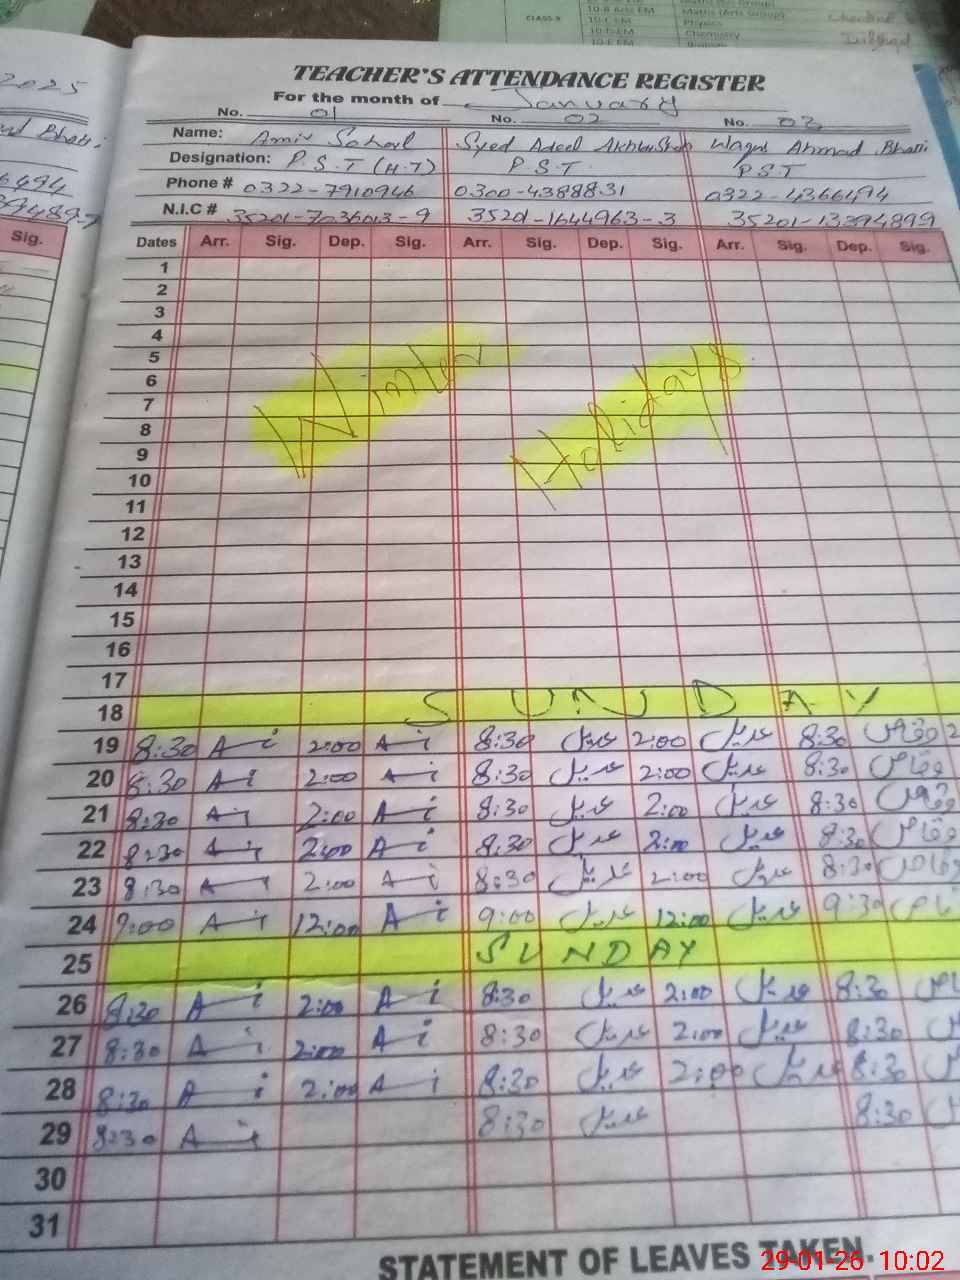 2025
CLASS X
10-C EM
10-D EM
10-E EM
Maths (Arts Group)
Physics
Chemistry
TEACHER'S ATTENDANCE REGISTER
For the month of January
No. 01 No. 02 No. 03
Name: Amir Sohail Syed Adeel Akhtar Shah Waqas Ahmad Bhatti
Designation: P.S.T (H.T) P.S.T. P.S.T
Phone # 0322-7910946 0300-4388831 0322-4366494
N.I.C # 35201-7036013-9 35201-1644963-3 35201-13394899
Sig. Dates Arr. Sig. Dep. Sig. Arr. Sig. Dep. Sig. Arr. Sig. Dep. Sig.
1
2
3
4
5
6
7
8
9
10
Winter Holidays
11
12
13
14
15
16
17
18 SUNDAY
19 8:30 A i 2:00 A i 8:30 عدیل 2:00 عدیل 8:30 وقاص 2
20 8:30 A i 2:00 A i 8:30 عدیل 2:00 عدیل 8:30 وقاص
21 8:30 A i 2:00 A i 8:30 عدیل 2:00 عدیل 8:30 وقاص
22 8:30 A i 2:00 A i 8:30 عدیل 2:00 عدیل 8:30 وقاص
23 8:30 A i 2:00 A i 8:30 عدیل 2:00 عدیل 8:30 وقاص
24 9:00 A i 12:00 A i 9:00 عدیل 12:00 عدیل 9:30
25 SUNDAY
26 8:30 A i 2:00 A i 8:30 عدیل 2:00 عدیل 8:30
27 8:30 A i 2:00 A i 8:30 عدیل 2:00 عدیل 8:30
28 8:30 A i 2:00 A i 8:30 عدیل 2:00 عدیل 8:30
29 8:30 A i 8:30 عدیل 8:30
30
31
STATEMENT OF LEAVES TAKEN.
29-01-26 10:02